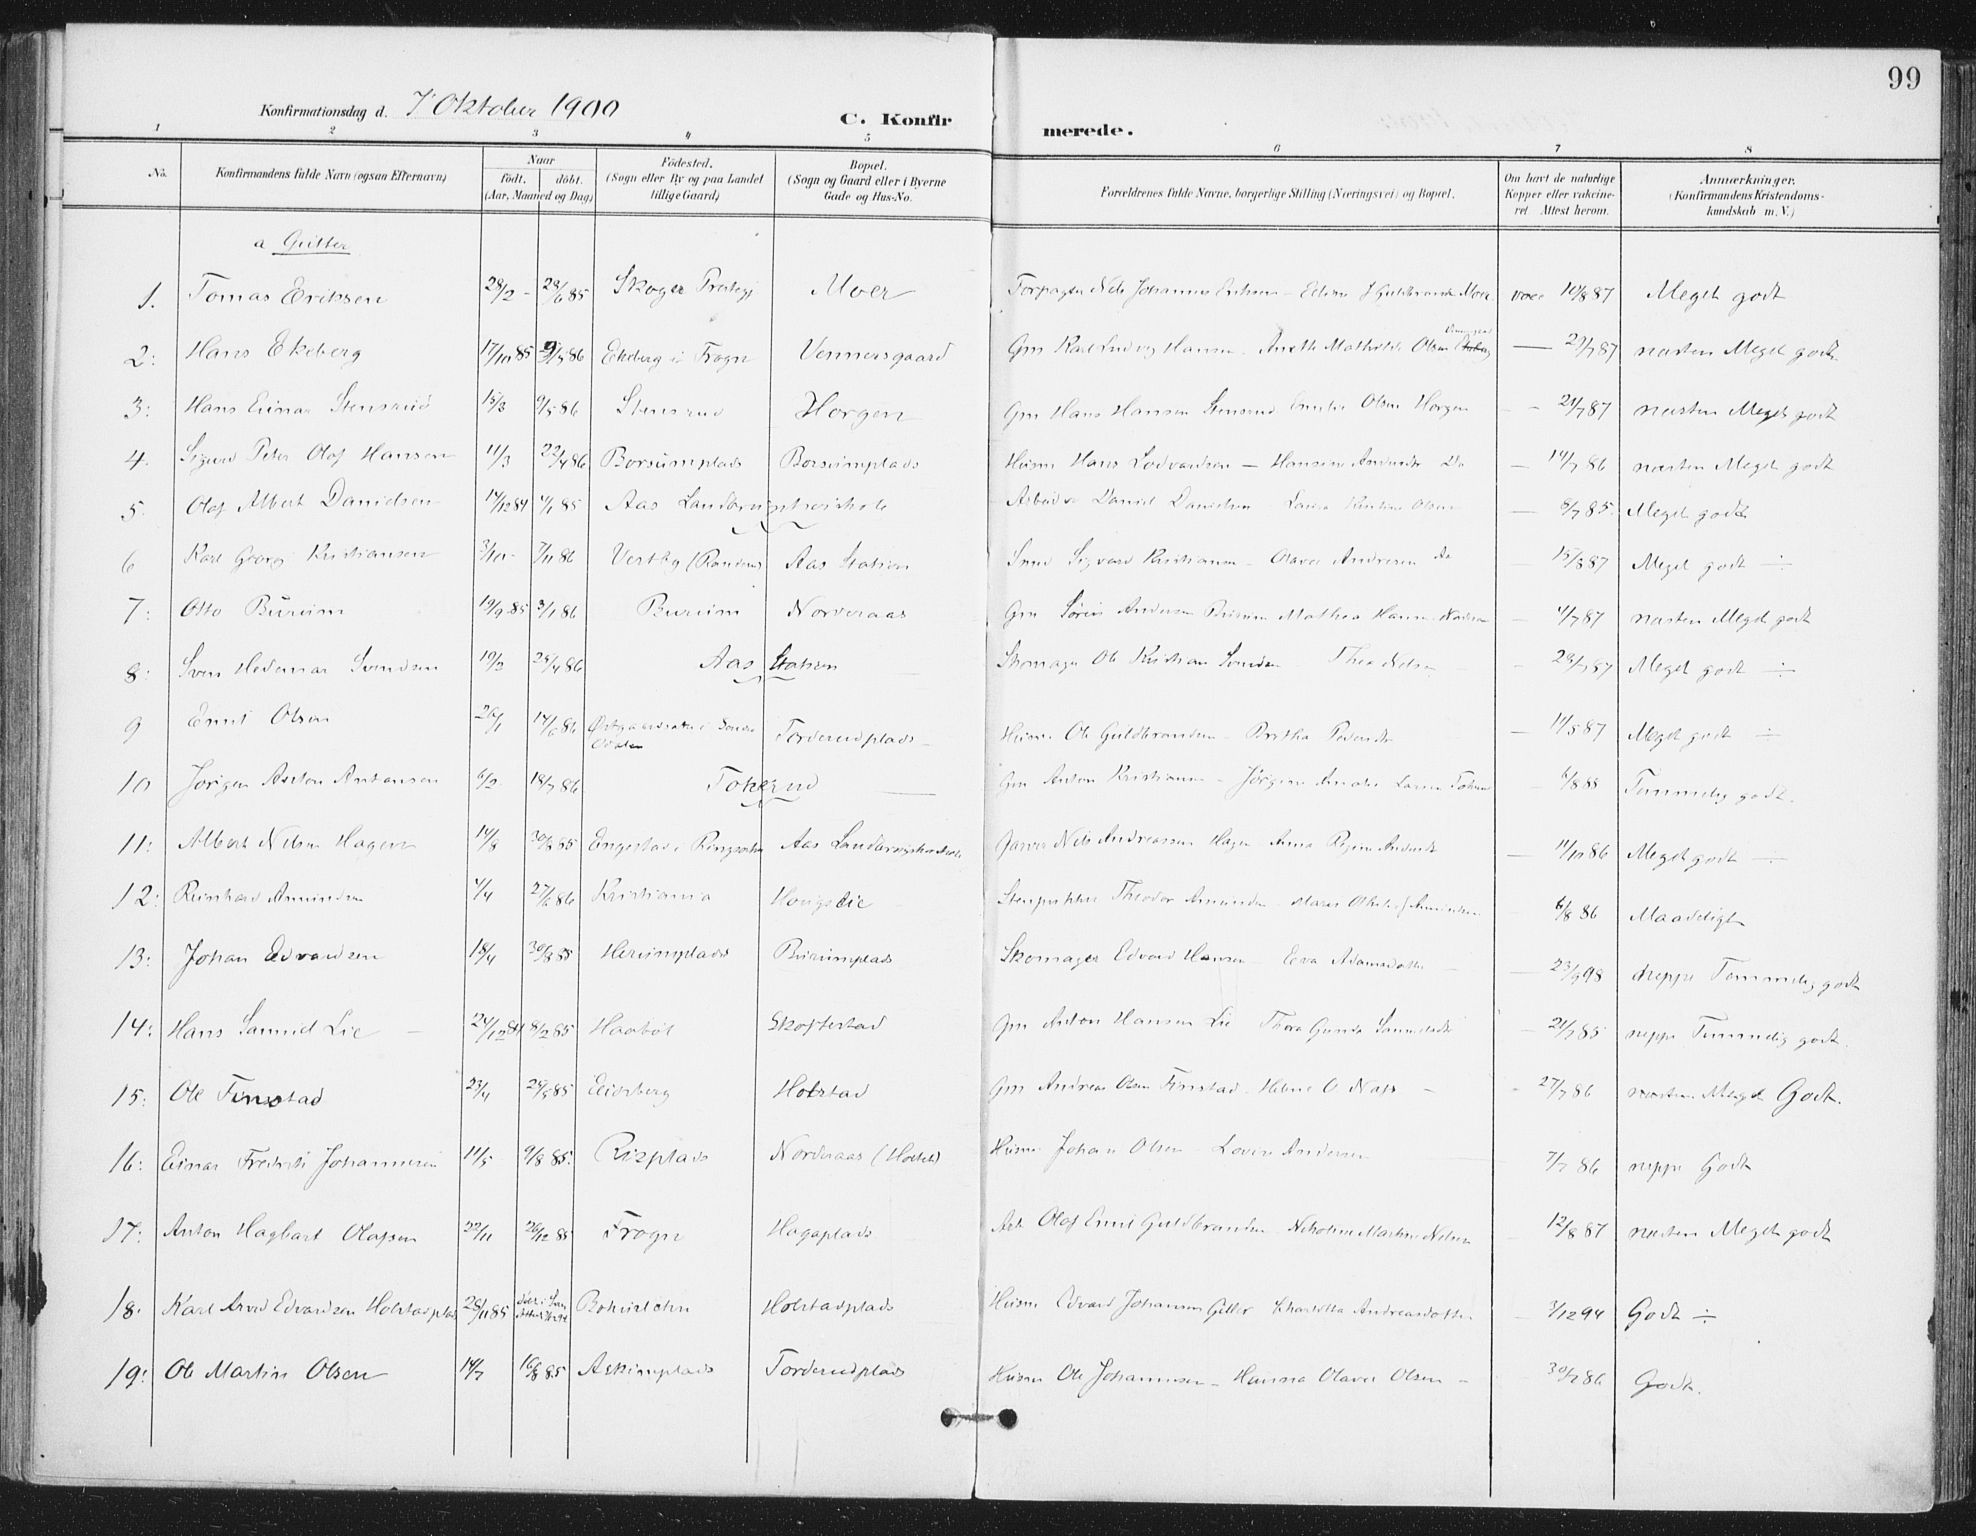 99
Konfirmationsdag d. 7' Oktober 1900
C. Konfirmerede.
1 2 3 4 5 6 7 8
No. Konfirmandens fulde Navn (ogsaa Efternavn) Naar født. døbt. (Aar, Maaned og Dag) Födested. (Sogn eller By og paa Landet tillige Gaard) Bopæl. (Sogn og Gaard eller i Byerne Gade og Hus-No. Forældrenes fulde Navne, borgerlige Stilling (Næringsvei) og Bopæl. Om havt de naturlige Kopper eller vakcineret Attest herom. Anmærkninger. (Konfirmandens Kristendomskundskab m. V.)
a Gutter
1. Tomas Eriksen 28/2 - 28/6 85 Skoger Prestegj Moer Nils Johannes Eriksen - vacc 10/8 87 Meget godt
2: Hans Ekeberg 17/10 85 9/5 86 Ekeberg i Frogn Vennersgaard Gm Karl Ludvig Hansen - Anette Mathilde Olsen — 29/7 87 næsten Meget godt
3: Hans Einar Stensrud 15/3 9/5 86 Stensrud Horgen Gm Hans Hansen Stensrud Emilie Olsen Horgen - 21/7 87 næsten Meget godt
4. Sigurd Peter Olaf Hansen 11/3 22/4 86 Borsumplads Borsumplads Husm Hans Lodvardsen — Hansine Andersdt Do — 14/7 86 næsten Meget godt
5. Olaf Albert Danielsen 17/12 84 4/1 85 Aas Landbrugshøiskole Arbeider Daniel Danielsen - Kristine Olsen — 8/7 85. Meget godt
6 Karl Georg Kristiansen 3/10 - 7/11 86 Vestby (Randem) Aas Station Smed Sigvard Kristiansen - Olava Andersen do — 15/8 87 Meget godt ÷
7: Otto Burum 19/9 85 3/1 86 Burum Norderaas Gm Søren Andersen Burum Mathea Hansen - 4/7 87 næsten Meget godt
8: Sven Hedemar Svendsen 19/2 25/4 86 Aas Station Skomager Ole Kristian Svendsen Thea Nilsen - 28/7 87 Meget godt ÷
9 Emil Olsen 26/1 14/6 86 i Søndre Odalen Torderudplads - Husm Ole Guldbrandsen - Birtha Pedersdt — 11/5 87 Meget godt ÷
10 Jørgen Anton Antonsen 6/2 18/7 86 Tokerud Gm Anton Kristiansen - Jörgine Amalie Larsen Tokerud - 6/8 88 Temmelig godt.
11: Albert Nilsen Hagen 14/8 30/8 85 Engestad i Ringsaker Aas Landbrugshøiskole Nils Andreassen Hagen Anna Regine Andersdt — 11/10 86 Meget godt ÷
12: Reinhard Amundsen 4/4 27/6 86 Kristiania Hougslie Theodor Amundsen - Amundsen - 6/8 86 Maadeligt
13: Johan Edvardsen 18/4 30/8 85 Herumplads Burumplads Skomager Edvard Hansen - Eva Adamsdatter — 23/9 98 neppe Temmelig godt
14: Hans Samuel Lie - 24/12 84 8/2 85 Haabøl Skoftestad Gm Anton Hansen Lie Thora Gunda Samuelsdt - 21/7 85 neppe Temmelig godt.
15: Ole Finstad 23/4 24/5 85 Eidsberg Holstad Gm Andreas Olsen Finstad - Helene O Næss - 27/7 86 næsten Meget Godt.
16: Einar Fredrik Johannesen 11/5 9/8 85: Risplads Norderaas (Holstd) Husm Johan Olsen - Lovise Andersen 7/7 86 neppe Godt
17: Anton Hagbart Olafsen 22/11 26/12 85 Frogn Hagaplads Arb Olaf Emil Guldbrandsen Nikoline Martine Nilsen - 12/8 87 næsten Meget godt
18. Karl Arvid Edvardsen Holstadplads 28/11 85 Bohuslehn Holstadplads Husm Edvard Johansen Geller Kharlotta Andreasdotter — 3/12 94 Godt ÷
19: Ole Martin Olsen 14/7 16/8 85 Askimplads Torderudplads Husm Ole Johannesen - Hanna Olava Olsen - 30/7 86 Godt.